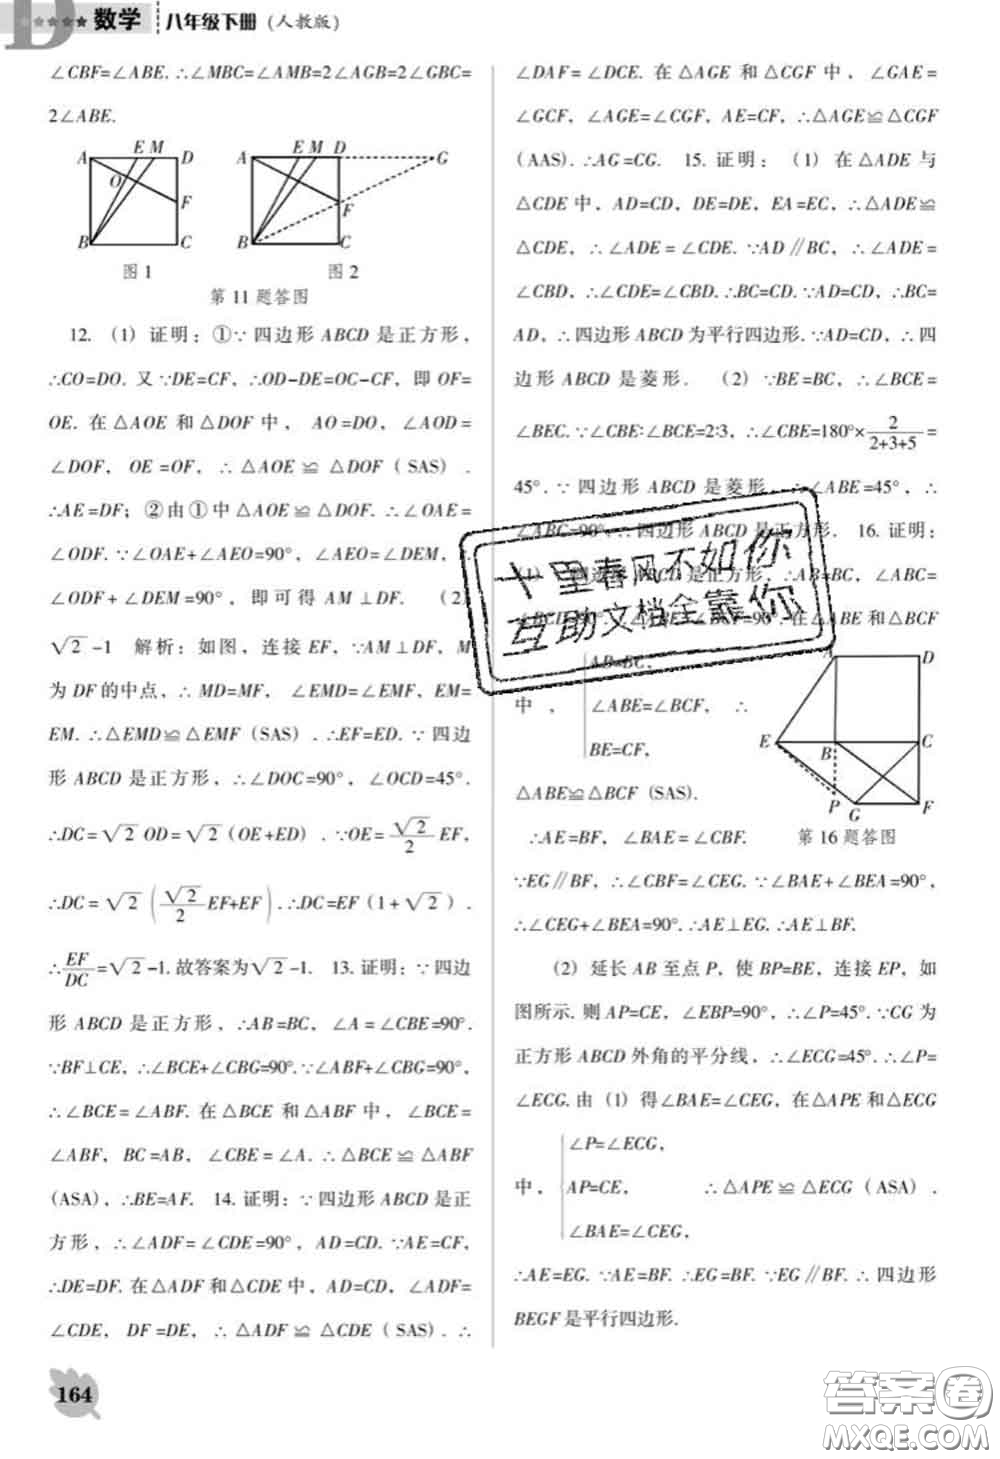 数学 八年级下册（人教版）
∠CBF=∠ABE. ∴∠MBC=∠AMB=2∠AGB=2∠GBC=
2∠ABE.
A E M D
O
F
B C
图 1
A E M D G
F
B C
图 2
第 11 题答图
12. （1）证明：①∵ 四边形 ABCD 是正方形，
∴CO=DO. 又∵DE=CF, ∴OD-DE=OC-CF, 即 OF=
OE. 在△AOE 和△DOF 中， AO=DO, ∠AOD=
∠DOF, OE=OF, ∴△AOE≌△DOF（SAS）.
∴AE=DF; ②由①中△AOE≌△DOF. ∴∠OAE=
∠ODF. ∵∠OAE+∠AEO=90°, ∠AEO=∠DEM,
∠ODF+∠DEM=90°, 即可得 AM⊥DF. （2）
√2-1 解析：如图，连接 EF, ∵AM⊥DF, M
为 DF 的中点，∴MD=MF, ∠EMD=∠EMF, EM=
EM. ∴△EMD≌△EMF（SAS）. ∴EF=ED. ∵ 四边
形 ABCD 是正方形，∴∠DOC=90°, ∠OCD=45°.
∴DC=√2 OD=√2（OE+ED）. ∵OE=√2/2 EF,
∴DC=√2（√2/2 EF+EF）. ∴DC=EF（1+√2）.
∴EF/DC=√2-1. 故答案为√2-1. 13. 证明：∵ 四边
形 ABCD 是正方形，∴AB=BC, ∠A=∠CBE=90°.
∵BF⊥CE, ∴∠BCE+∠CBG=90°. ∵∠ABF+∠CBG=90°,
∴∠BCE=∠ABF. 在△BCE 和△ABF 中，∠BCE=
∠ABF, BC=AB, ∠CBE=∠A. ∴△BCE≌△ABF
(ASA), ∴BE=AF. 14. 证明：∵ 四边形 ABCD 是正
方形，∴∠ADF=∠CDE=90°, AD=CD. ∵AE=CF,
∴DE=DF. 在△ADF 和△CDE 中，AD=CD, ∠ADF=
∠CDE, DF=DE, ∴△ADF≌△CDE（SAS）. ∴
∠DAF=∠DCE. 在△AGE 和△CGF 中，∠GAE=
∠GCF, ∠AGE=∠CGF, AE=CF, ∴△AGE≌△CGF
(AAS). ∴AG=CG. 15. 证明：（1）在△ADE 与
△CDE 中，AD=CD, DE=DE, EA=EC, ∴△ADE≌
△CDE, ∴∠ADE=∠CDE. ∵AD∥BC, ∴∠ADE=
∠CBD, ∴∠CDE=∠CBD. ∴BC=CD. ∵AD=CD, ∴BC=
AD, ∴四边形 ABCD 为平行四边形. ∵AD=CD, ∴四
边形 ABCD 是菱形. （2）∵BE=BC, ∴∠BCE=
∠BEC. ∵∠CBE∶∠BCE=2∶3, ∴∠CBE=180°×2/(2+3+5)=
45°. ∵ 四边形 ABCD 是菱形，∴∠ABE=45°, ∴
∠ABC=90°. ∴ 四边形 ABCD 是正方形. 16. 证明：
（1） 四边形 ABCD 是正方形，∴AB=BC, ∠ABC=
=90°. 在△ABE 和△BCF
中， AB=BC,
∠ABE=∠BCF, ∴
BE=CF,
△ABE≌△BCF（SAS）.
A D
E B C
P G F
第 16 题答图
∴AE=BF, ∠BAE=∠CBF.
∵EG∥BF, ∴∠CBF=∠CEG. ∵∠BAE+∠BEA=90°,
∴∠CEG+∠BEA=90°. ∴AE⊥EG. ∴AE⊥BF.
（2）延长 AB 至点 P, 使 BP=BE, 连接 EP, 如
图所示. 则 AP=CE, ∠EBP=90°, ∴∠P=45°. ∵CG 为
正方形 ABCD 外角的平分线，∴∠ECG=45°. ∴∠P=
∠ECG. 由（1）得∠BAE=∠CEG, 在△APE 和△ECG
中， ∠P=∠ECG,
AP=CE, ∴△APE≌△ECG（ASA）.
∠BAE=∠CEG,
∴AE=EG. ∵AE=BF. ∴EG=BF. ∵EG∥BF. ∴四边形
BEGF 是平行四边形.
十里春风不如你
互助文档全靠你
164
答案卷
MXQE.COM